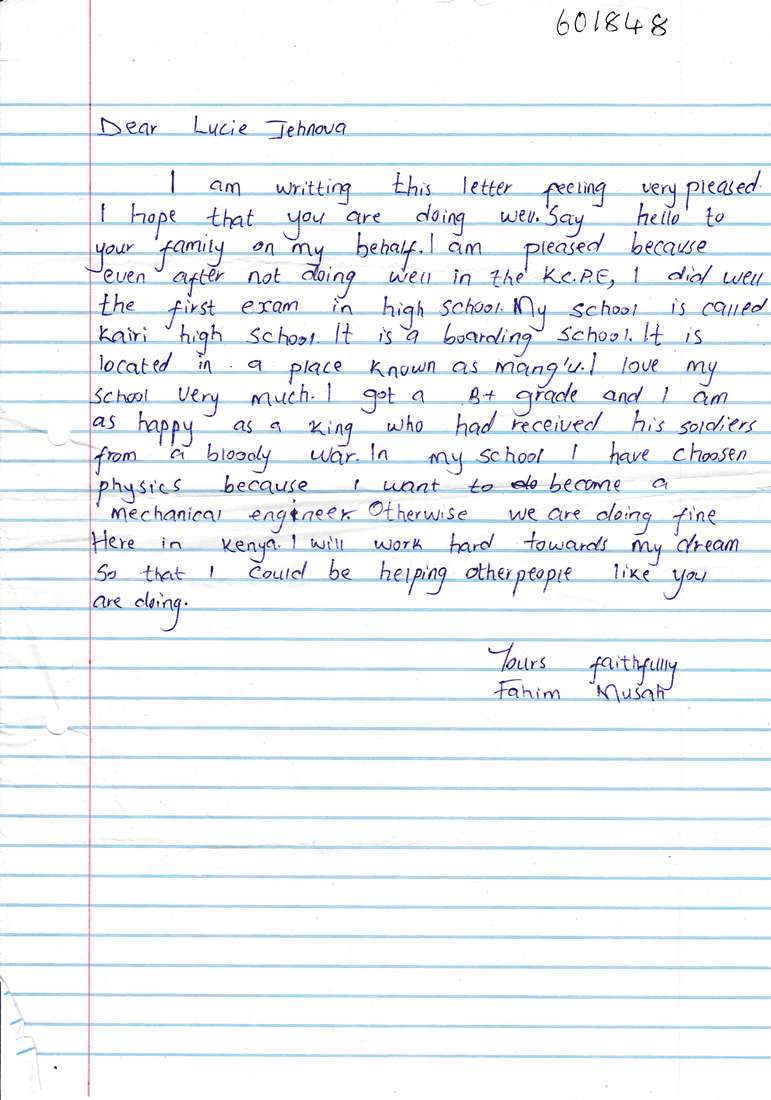 601848
Dear Lucie Jehnova
I am writting this letter feeling very pleased.
I hope that you are doing well. Say hello to
your family on my behalf. I am pleased because
even after not doing well in the K.C.P.E, I did well
the first exam in high school. My school is called
Kairi high school. It is a boarding school. It is
located in a place known as mang'u. I love my
school very much. I got a B+ grade and I am
as happy as a king who had received his soldiers
from a bloody war. In my school I have choosen
physics because I want to do become a
mechanical engineer. Otherwise we are doing fine
Here in Kenya. I will work hard towards my dream
So that I could be helping other people like you
are doing.
Yours faithfully
Fahim Musah